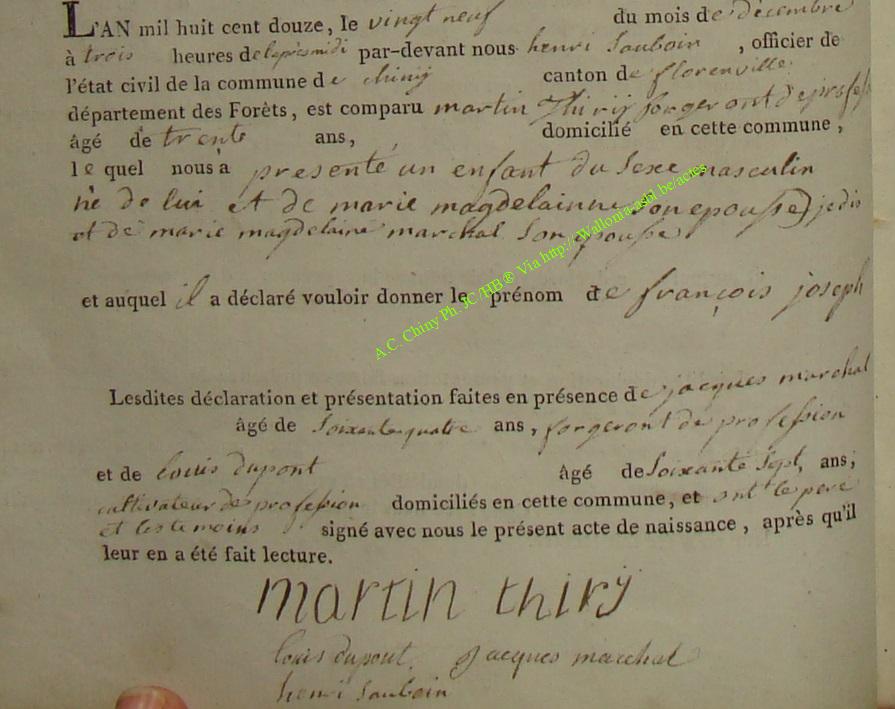 L'AN mil huit cent douze, le vingt neuf du mois de décembre
à trois heures de laprèsmidi par-devant nous henri Sauboin, officier de
l'état civil de la commune de chiny canton de florenville
département des Forêts, est comparu martin Thiry forgeront de profess
âgé de trente ans, domicilié en cette commune,
le quel nous a presenté un enfant du Sexe masculin
né de lui et de marie magdelainne son epousse) je dis
et de marie magdelaine marchal Son epousse
et auquel il a déclaré vouloir donner le prénom de françois joseph
Lesdites déclaration et présentation faites en présence de jacques marchal
âgé de Soixante quatre ans, forgeront de profession
et de louis dupont âgé de Soixante Sept, ans,
cultivateur de profession domiciliés en cette commune, et ont le pere
et les temoins signé avec nous le présent acte de naissance, après qu'il
leur en a été fait lecture.
martin thiry
louis dupont. Jacques marchal
henri Sauboin
A.C. Chiny Ph. JC /HB® Via http://Wallonia-asbl.be/actes